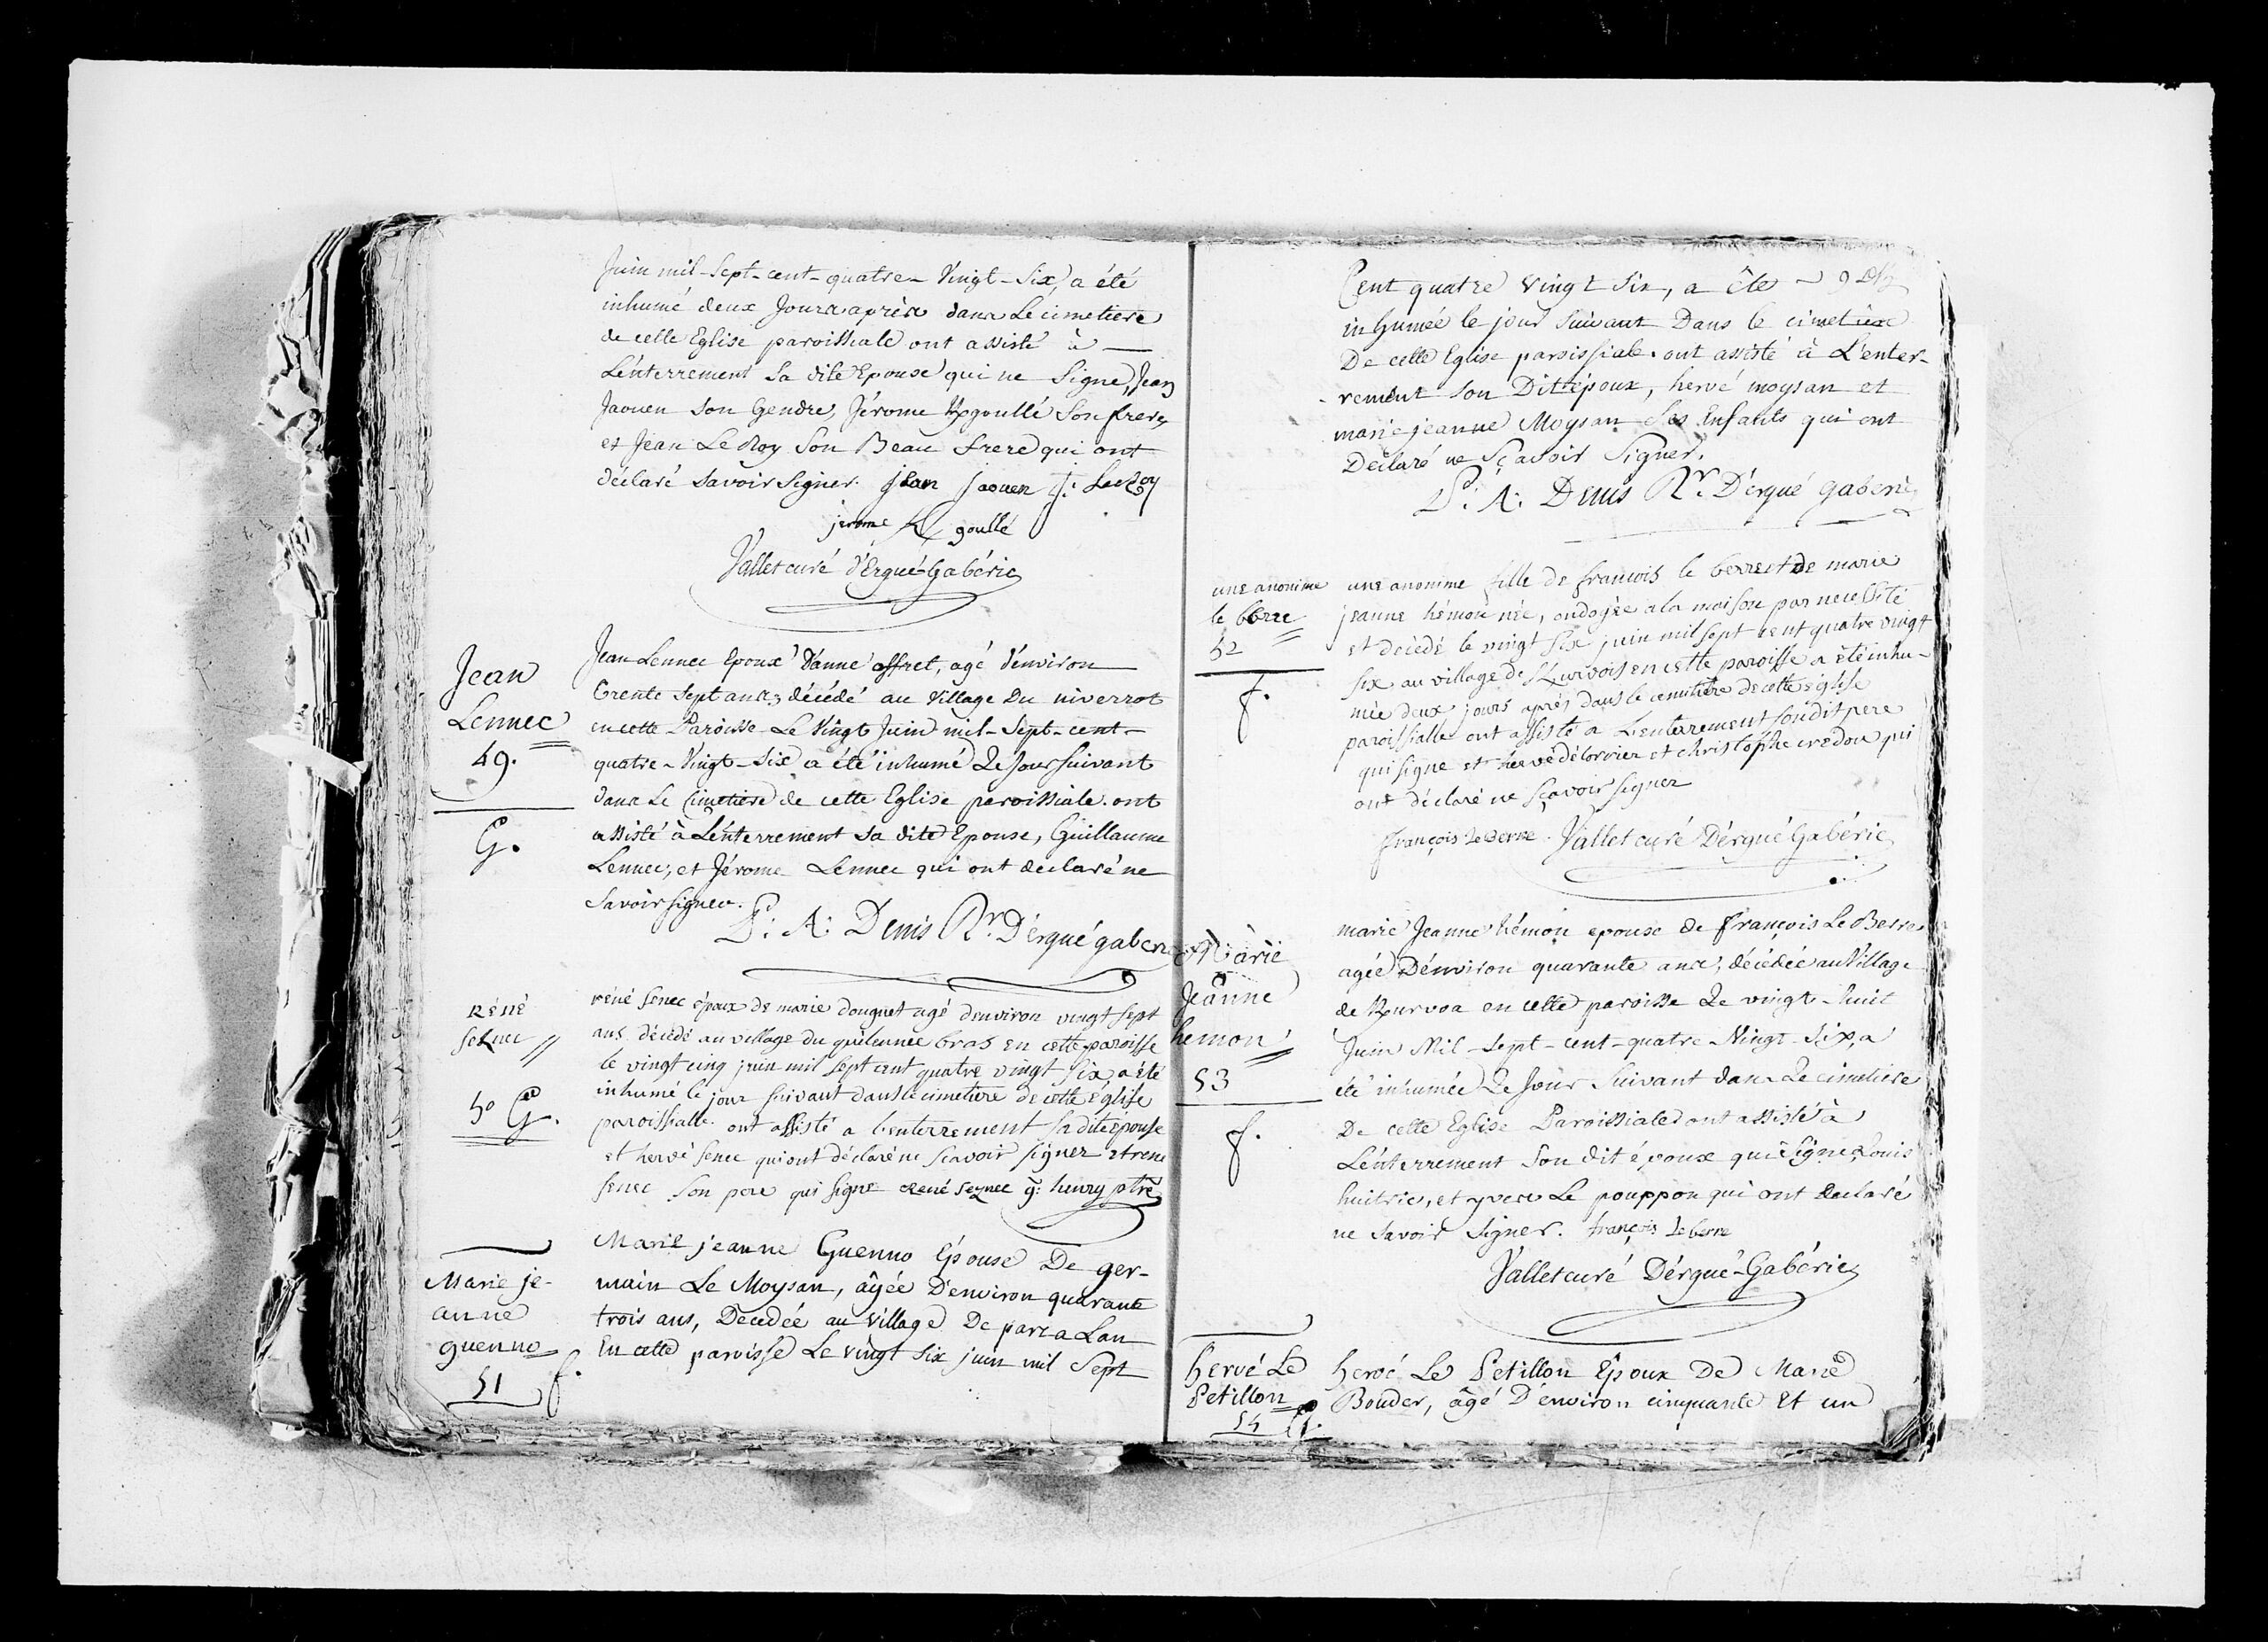 Juin mil-sept-cent-quatre-Vingt-Six, a été
inhumé deux Jours après dans Le cimetiere
de cette Eglise paroissiale ont assisté à
L'enterrement Sa dite Epouse qui ne Signe, Jean
Jaouen son Gendre, Jérome Kgoullé Son frere,
et Jean Le Roy Son Beau frere qui ont
déclaré savoir signer. jean jaouen J: LeRoy
jerome K goullé
Vallet curé d'Ergué-Gabéric
Jean
Lennec
49.
G.
Jean Lennec Epoux D'anne affret, agé d'environ
trente Sept ans, décédé au Village Du niverrot
en cette Paroisse Le Vingt Juin mil-Sept-cent-
quatre-Vingt-Six a été inhumé Le Jour Suivant
dans Le Cimetiere de cette Eglise paroissiale. ont
assisté à L'enterrement sa dite Epouse, Guillaume
Lennec, et Jérome Lennec qui ont declaré ne
savoir signer.
P: A: Denis Rr. D'érgué gaberic
Réné
Seznec
50 G.
réné senec époux de marie douguet agé denviron vingt sept
ans décédé au village du quélennec bras en cette paroisse
le vingt cinq juin mil sept cent quatre vingt six a été
inhumé le jour suivant dans le cimetiere de cette église
paroissialle. ont assisté a l'enterrement sa dite épouse
et hervé senec qui ont déclaré ne scavoir signer et rene
senec son pere qui signe René Seznec g: henry ptre
Marie je-
anne
guenno
51 f.
Marie jeanne Guenno Epouse De ger-
main Le Moysan, âgée D'environ quarante
trois ans, Decedée au village De parca Lan
En cette paroisse Le vingt six juin mil Sept
Cent quatre vingt Six, a été
inhumée le jour suivant Dans le cimetiere
De cette Eglise paroissiale. ont assisté à L'enter-
rement son Dit époux, hervé moysan et
marie jeanne Moysan ses Enfants qui ont
Declaré ne Sçavoir Signer.
P: A: Denis Rr. D'ergué gaberic
une anonime
le berre
52
f.
une anonime fille de francois le berre et de marie
jeanne hémon née, ondoyée a la maison par necessité
et décédé le vingt six juin mil sept cent quatre vingt
six au village de Kurvois en cette paroisse a été inhu-
mée deux jours après dans le cemitière de cette église
paroissialle ont assisté a L'enterrement son dit pere
qui signe et hervé délorvier et christophe credou qui
ont déclaré ne sçavoir signer
françois le Berre. Vallet curé D'érgué Gabéric
Marie
Jeanne
hemon
53
f.
marie Jeanne hémon epouse de François Le Berre
agée D'environ quarante ans, décédée au Village
de Kurvoa en cette paroisse Le vingt-huit
Juin Mil-sept-cent-quatre-Vingt-Six, a
été inhumée Le Jour Suivant dans Le cimetiere
De cette Eglise Paroissiale ont assisté à
L'enterrement Son dit époux qui Signe, Louis
huitric, et yves Le pouppon qui ont declaré
ne savoir signer. françois le berre
Vallet curé D'érgué-Gabéric
hervé Le
Petillon
54 G.
hervé Le Petillon Epoux De Marie
Bouder, âgé D'environ cinquante Et un